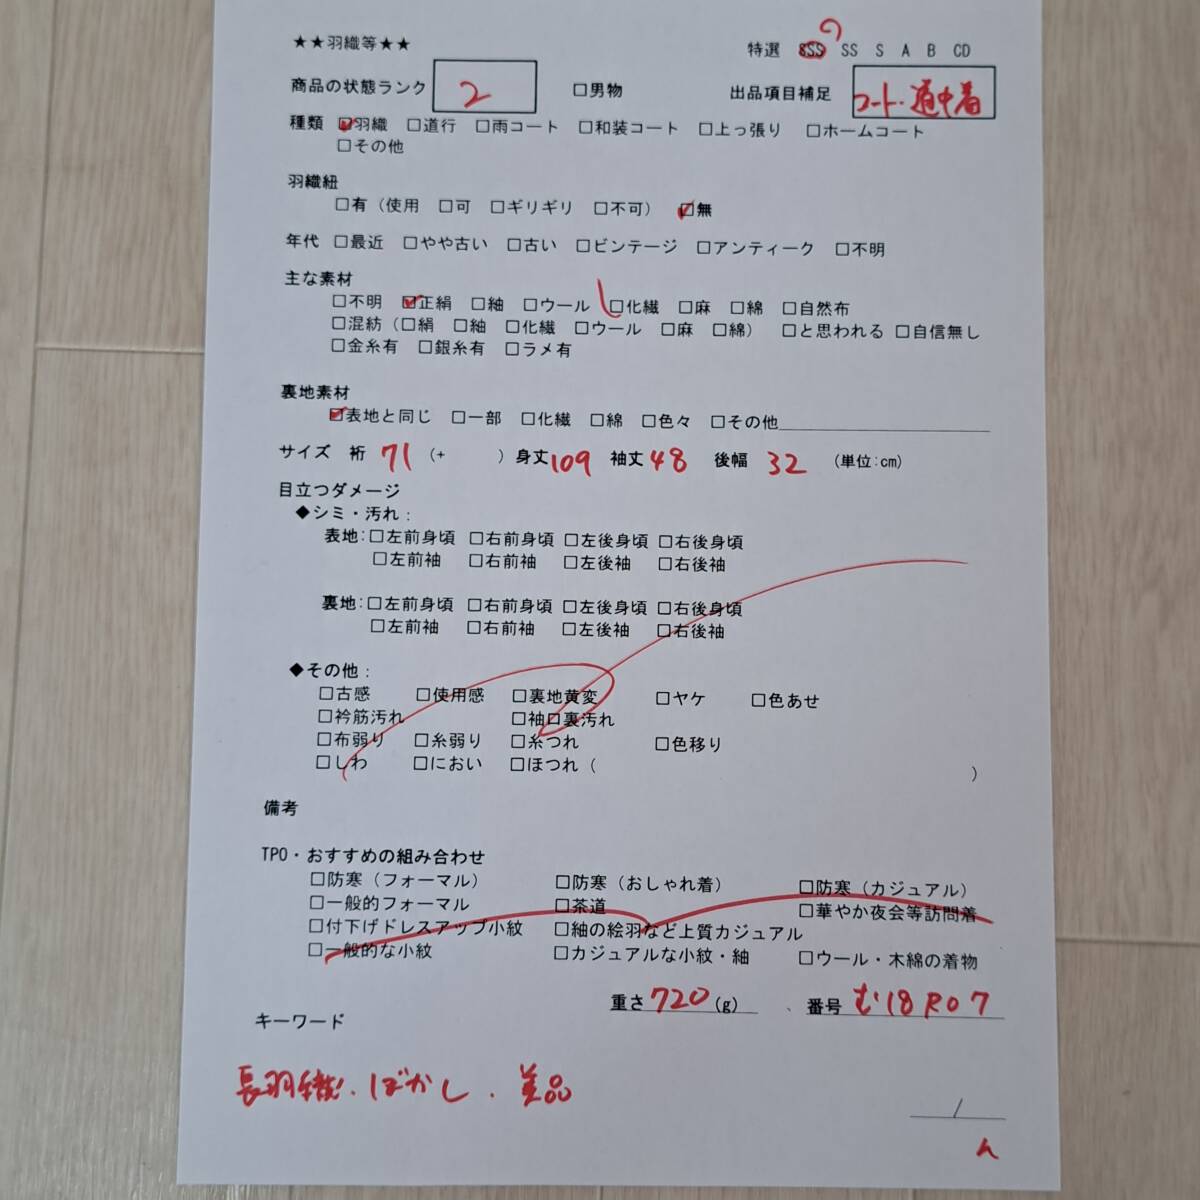 ★★羽織等★★ 特選 SSS SS S A B CD
商品の状態ランク 2 □男物 出品項目補足 コート・道中着
種類 ☑羽織 □道行 □雨コート □和装コート □上っ張り □ホームコート
□その他
羽織紐
□有（使用 □可 □ギリギリ □不可） ☑無
年代 □最近 □やや古い □古い □ビンテージ □アンティーク □不明
主な素材
□不明 ☑正絹 □紬 □ウール □化繊 □麻 □綿 □自然布
□混紡（□絹 □紬 □化繊 □ウール □麻 □綿） □と思われる □自信無し
□金糸有 □銀糸有 □ラメ有
裏地素材
☑表地と同じ □一部 □化繊 □綿 □色々 □その他
サイズ 裄 71 (+ ) 身丈109 袖丈48 後幅 32 (単位:cm)
目立つダメージ
◆シミ・汚れ：
表地:□左前身頃 □右前身頃 □左後身頃 □右後身頃
□左前袖 □右前袖 □左後袖 □右後袖
裏地:□左前身頃 □右前身頃 □左後身頃 □右後身頃
□左前袖 □右前袖 □左後袖 □右後袖
◆その他：
□古感 □使用感 □裏地黄変 □ヤケ □色あせ
□衿筋汚れ □袖口裏汚れ
□布弱り □糸弱り □糸つれ □色移り
□しわ □におい □ほつれ（ ）
備考
TPO・おすすめの組み合わせ
□防寒（フォーマル） □防寒（おしゃれ着） □防寒（カジュアル）
□一般的フォーマル □茶道 □華やか夜会等訪問着
□付下げドレスアップ小紋 □紬の絵羽など上質カジュアル
□一般的な小紋 □カジュアルな小紋・紬 □ウール・木綿の着物
重さ720(g) 、番号 む18R07
キーワード
長羽織、ぼかし、美品
/